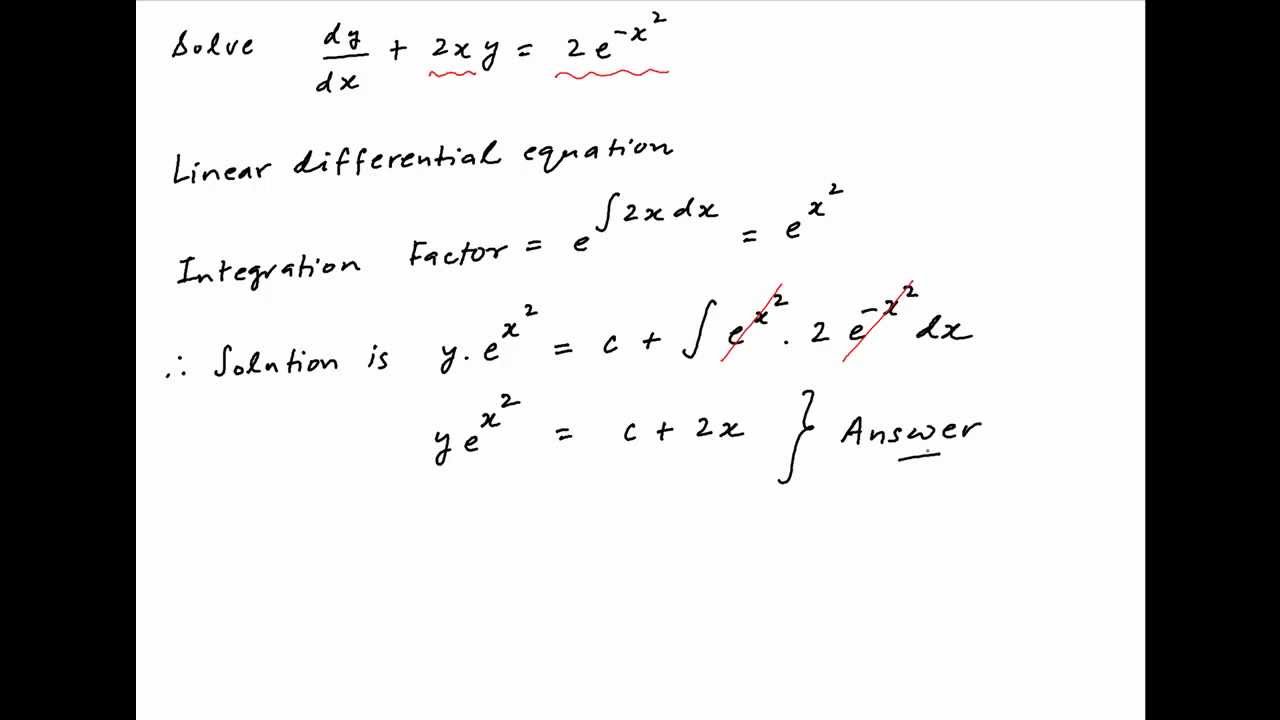 Solve dy/dx + 2xy = 2e^{-x^2}
Linear differential equation
Integration Factor = e^{∫2x dx} = e^{x^2}
∴ Solution is y.e^{x^2} = c + ∫ e^{x^2} . 2 e^{-x^2} dx
y e^{x^2} = c + 2x } Answer